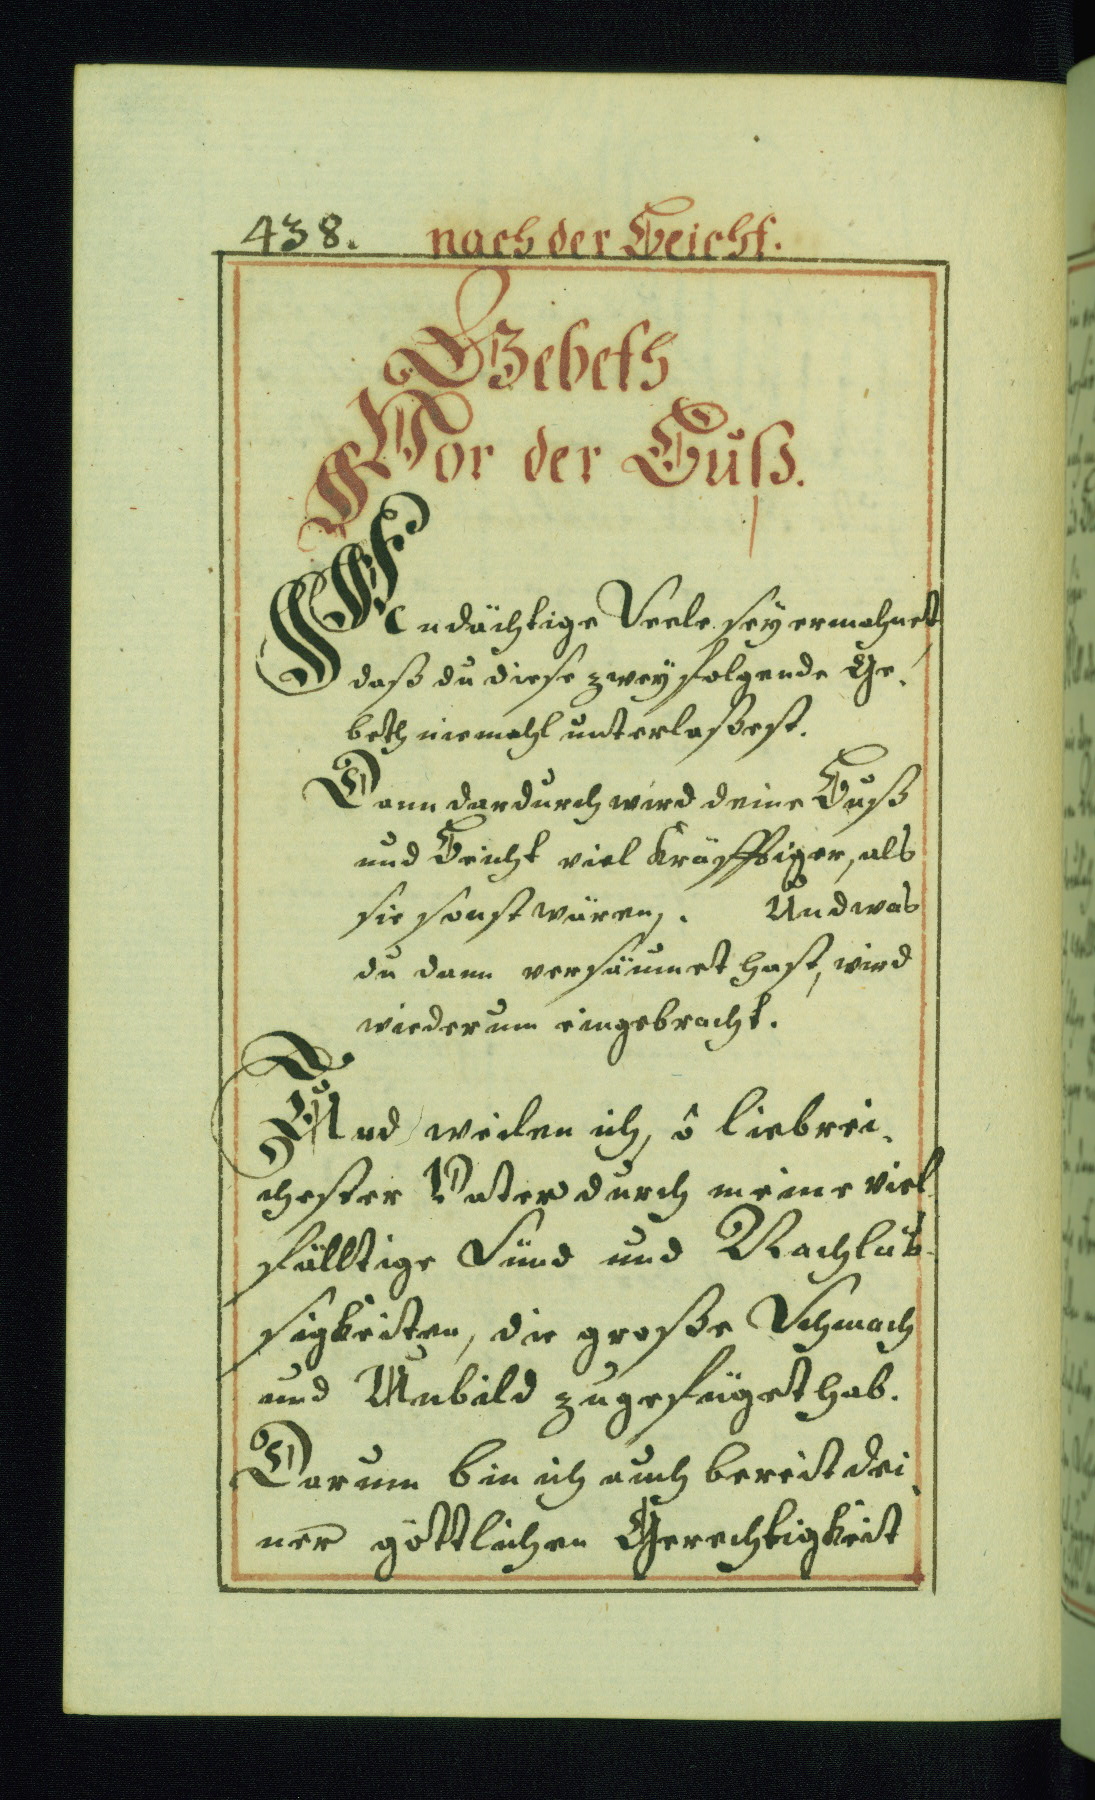 438. nach der Beicht.
Gebeth
Vor der Buß.
Andächtige Seele sey ermahnet,
daß du diese zwey folgende Ge-
beth niemahl unterlaßest.
Dann dardurch wird deine Buß
und Beicht viel kräfftiger, als
sie sonst wären. Und was
du dann versäumet hast, wird
wiederum eingebracht.
Und weilen ich, ô liebrei-
chester Vater durch meine viel-
fälltige Sünd und Nachläs-
sigkeiten, die große Schmach
und Unbild zugefüget hab.
Darum bin ich auch bereit dei-
ner göttlichen Gerechtigkeit